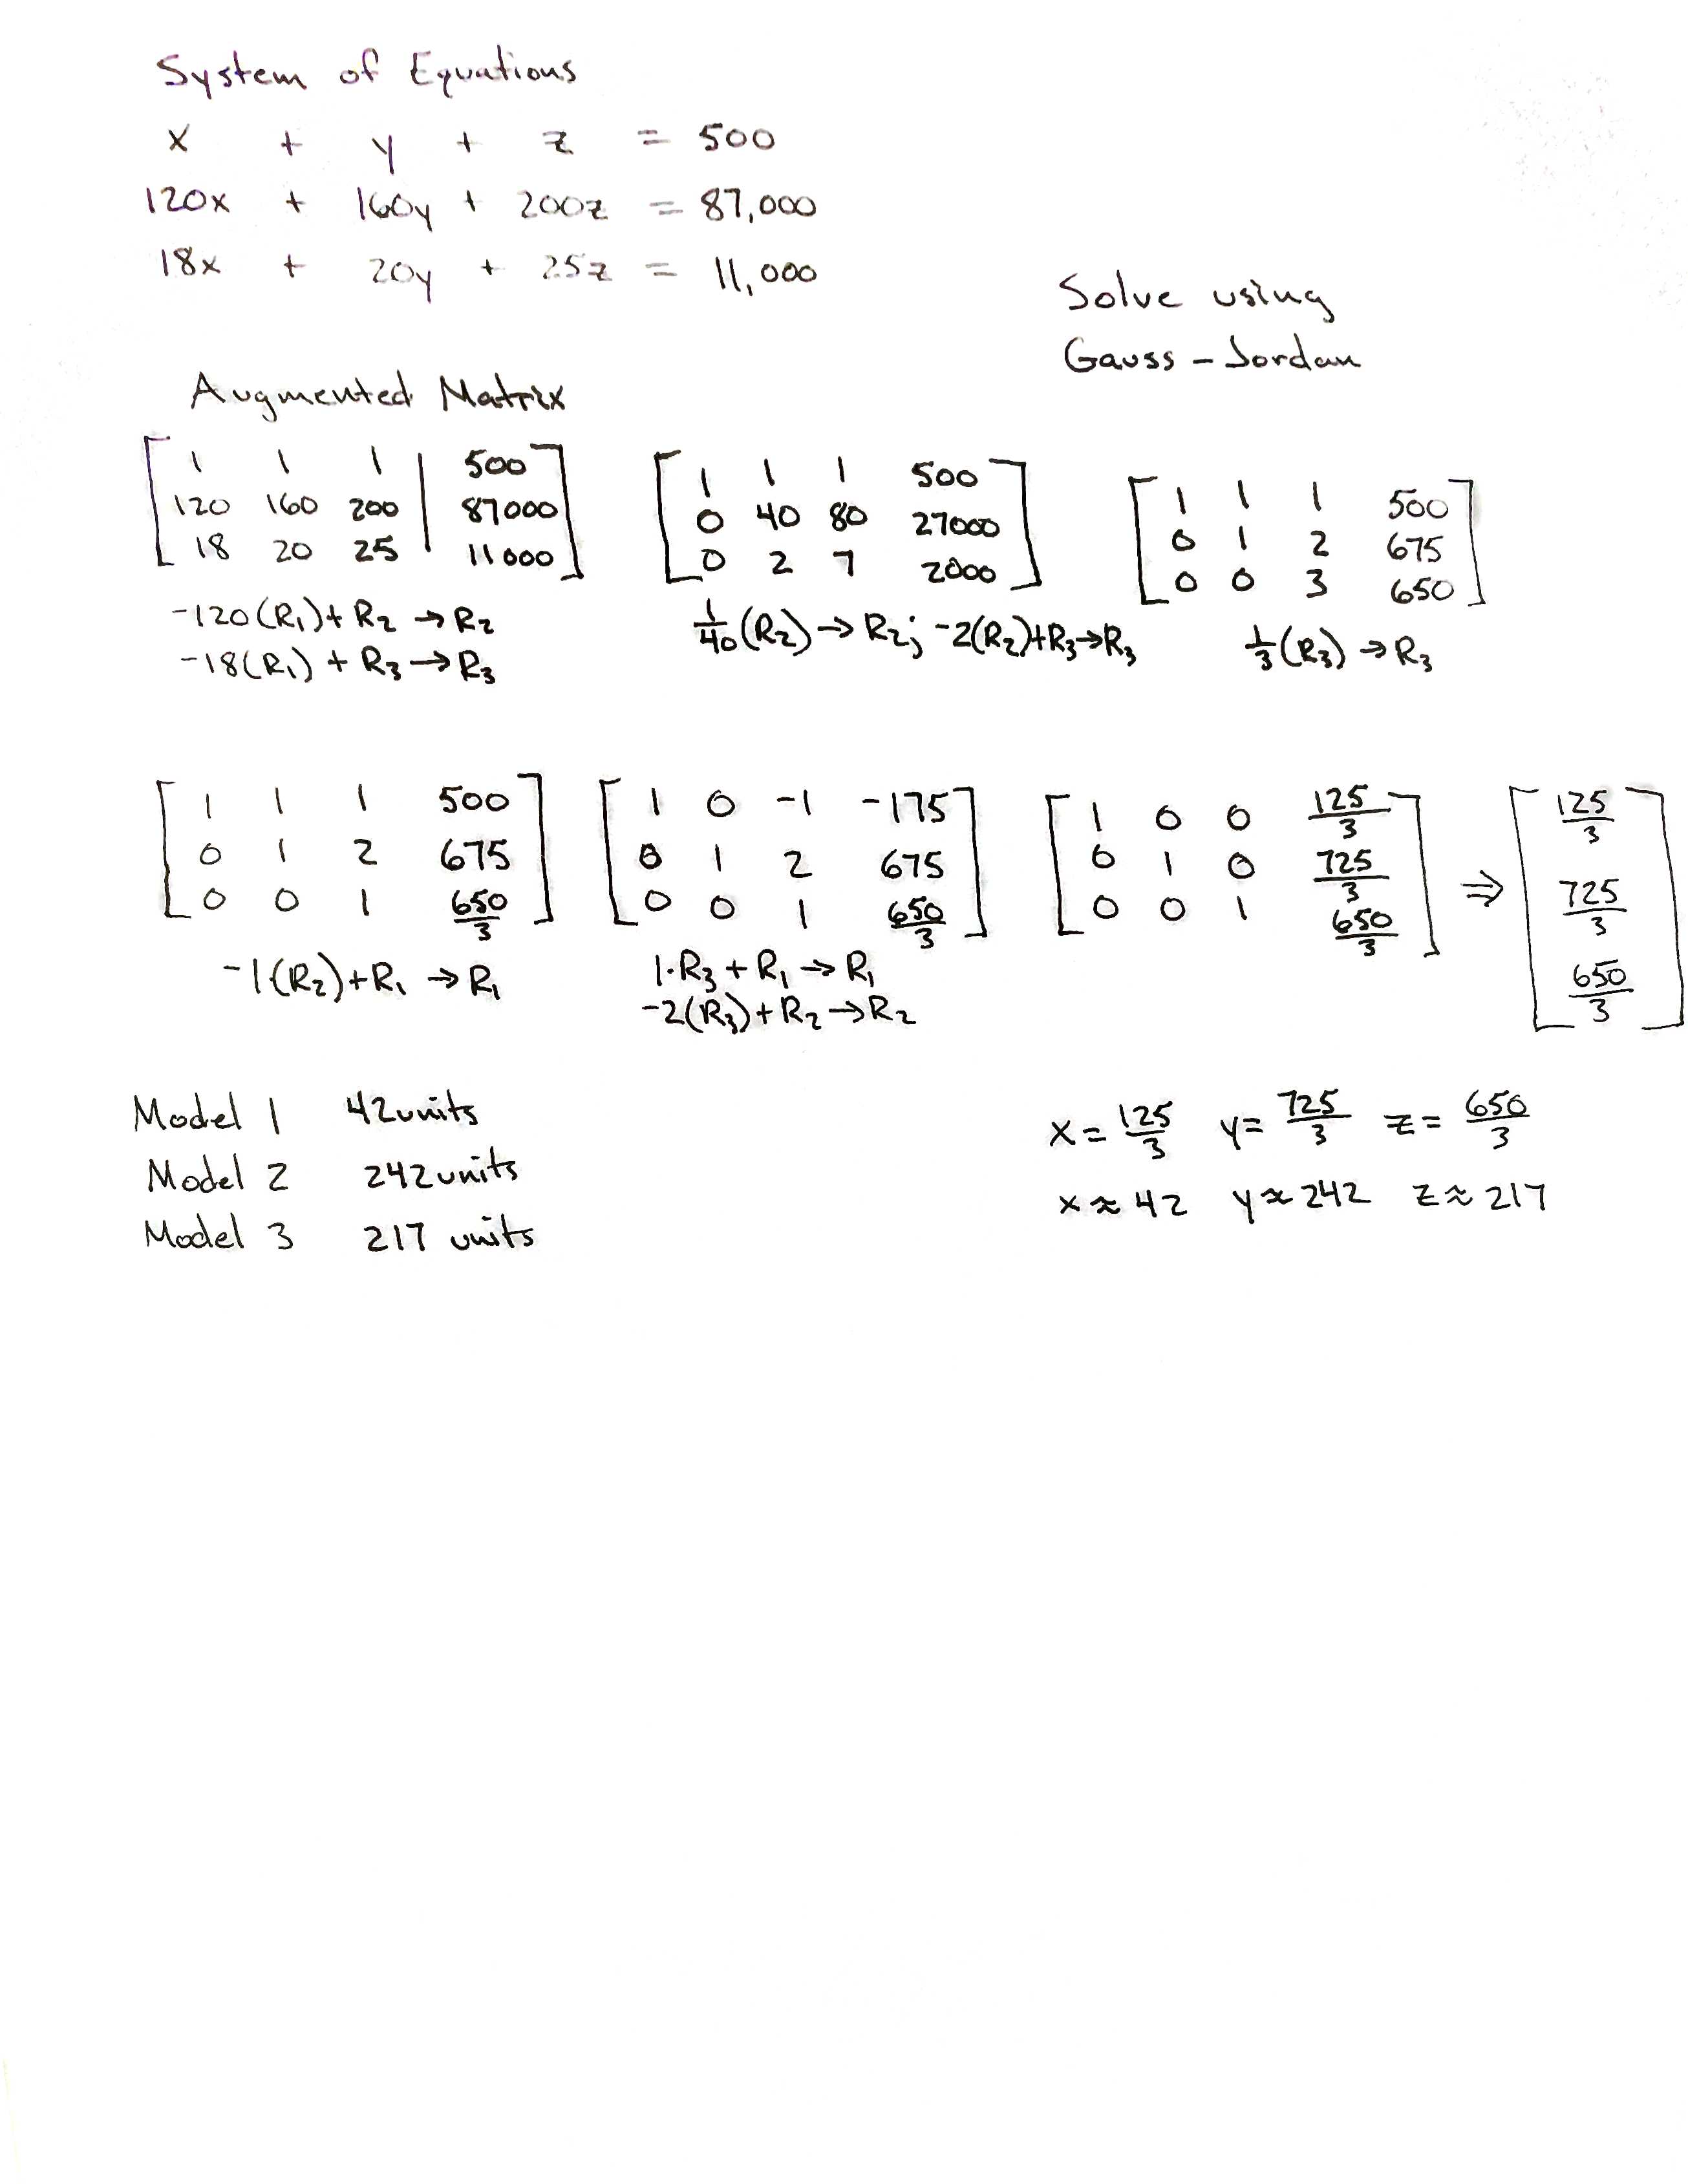 System of Equations
x + y + z = 500
120x + 160y + 200z = 87,000
18x + 20y + 25z = 11,000
Solve using
Gauss - Jordan
Augmented Matrix
1 1 1 | 500
120 160 200 | 87000
18 20 25 | 11000
-120(R₁) + R₂ → R₂
-18(R₁) + R₃ → R₃
1 1 1 500
0 40 80 27000
0 2 7 2000
1/40 (R₂) → R₂; -2(R₂)+R₃→R₃
1 1 1 500
0 1 2 675
0 0 3 650
1/3 (R₃) → R₃
1 1 1 500
0 1 2 675
0 0 1 650/3
-1(R₂)+R₁ → R₁
1 0 -1 -175
0 1 2 675
0 0 1 650/3
1·R₃ + R₁ → R₁
-2(R₃)+R₂→R₂
1 0 0 125/3
0 1 0 725/3
0 0 1 650/3
⇒
125/3
725/3
650/3
Model 1 42units
Model 2 242units
Model 3 217 units
x = 125/3 y = 725/3 z = 650/3
x ≈ 42 y ≈ 242 z ≈ 217